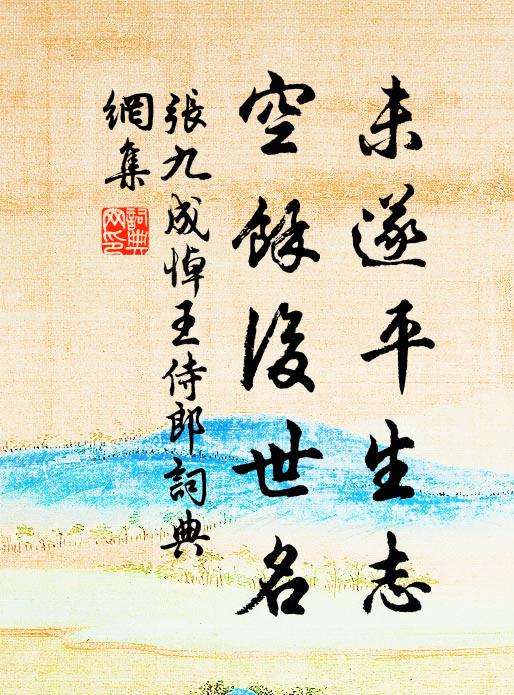 未遂平生志
空餘後世名
張九成悼王侍郎詞典
網集
詞典
网印